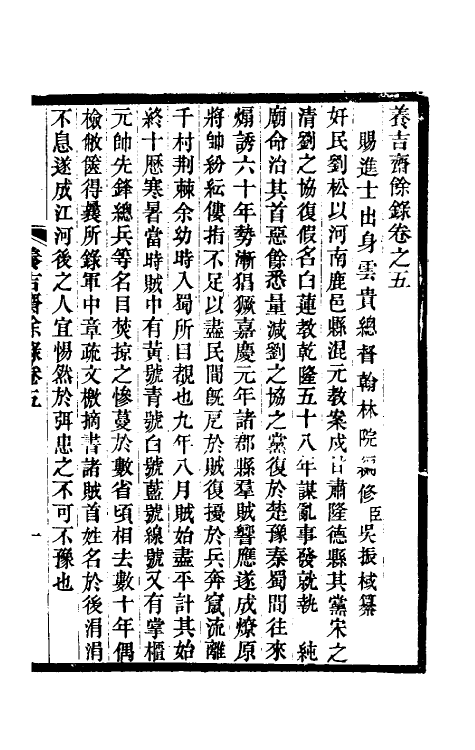 養吉齋餘錄卷之五
賜進士出身雲貴總督翰林院編修臣吳振棫纂
奸民劉松以河南鹿邑縣混元教案戍甘肅隆德縣其黨宋之
清劉之協復假名白蓮教乾隆五十八年謀亂事發就執　純
廟命治其首惡餘悉量減劉之協之黨復於楚豫秦蜀間往來
煽誘六十年勢漸猖獗嘉慶元年諸郡縣羣賊響應遂成燎原
將帥紛紜僂指不足以盡民間旣戹於賊復擾於兵奔竄流離
千村荆棘余幼時入蜀所目覩也九年八月賊始盡平計其始
終十歷寒暑當時賊中有黃號青號白號藍號線號又有掌櫃
元帥先鋒總兵等名目焚掠之慘蔓於數省頃相去數十年偶
檢敝篋得曩所錄軍中章疏文檄摘書諸賊首姓名於後涓涓
不息遂成江河後之人宜惕然於弭患之不可不豫也
養吉齋余錄卷五
一